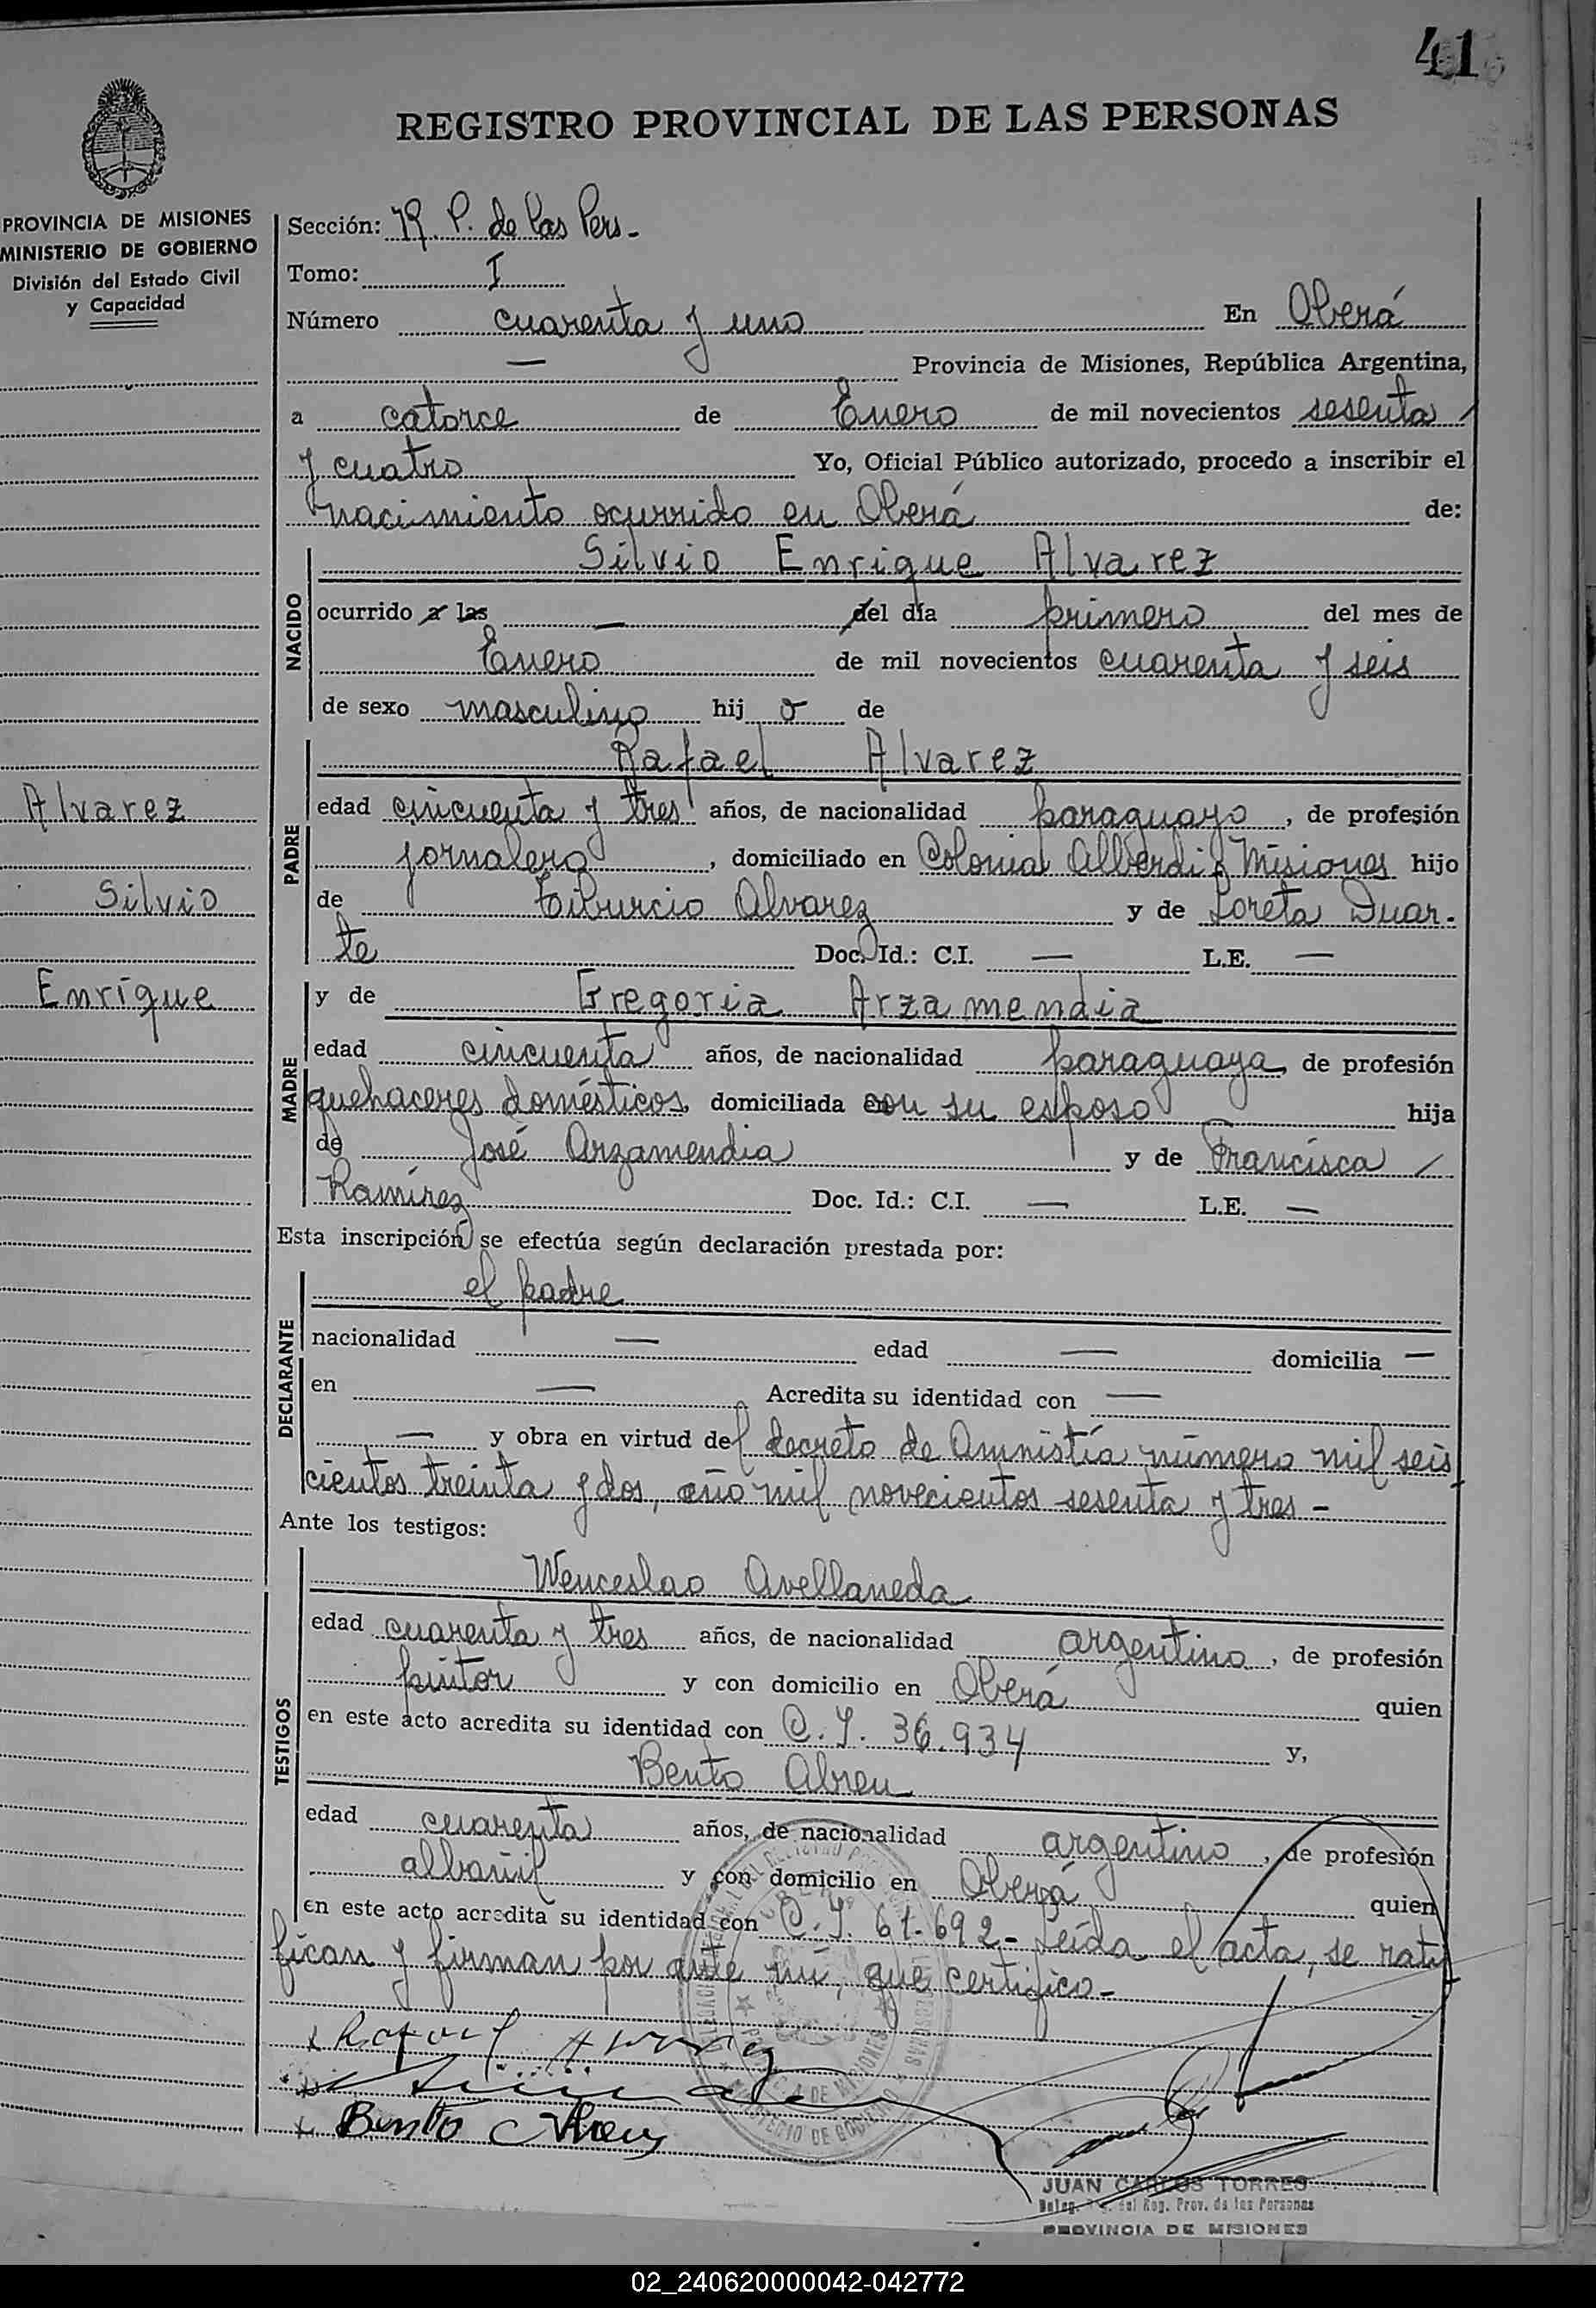 41
REGISTRO PROVINCIAL DE LAS PERSONAS
PROVINCIA DE MISIONES
MINISTERIO DE GOBIERNO
División del Estado Civil
y Capacidad
Sección: R. P. de las Pers-
Tomo: I
Número cuarenta y uno En Oberá
— Provincia de Misiones, República Argentina,
a catorce de Enero de mil novecientos sesenta
y cuatro Yo, Oficial Público autorizado, procedo a inscribir el
nacimiento ocurrido en Oberá de:
NACIDO
Silvio Enrique Alvarez
ocurrido a las — del día primero del mes de
Enero de mil novecientos cuarenta y seis
de sexo masculino hijo de
PADRE
Rafael Alvarez
Alvarez
Silvio
Enrique
edad cincuenta y tres años, de nacionalidad paraguayo, de profesión
jornalero, domiciliado en Colonia Alberdi, Misiones hijo
de Tiburcio Alvarez y de Loreta Duar-
te Doc. Id.: C.I. — L.E. —
MADRE
y de Gregoria Arzamendia
edad cincuenta años, de nacionalidad paraguaya, de profesión
quehaceres domésticos, domiciliada con su esposo hija
de José Arzamendia y de Francisca
Ramírez Doc. Id.: C.I. — L.E. —
Esta inscripción se efectúa según declaración prestada por:
DECLARANTE
el padre
nacionalidad — edad — domicilia —
en — Acredita su identidad con —
— y obra en virtud del decreto de Amnistía número mil seis
cientos treinta y dos, año mil novecientos sesenta y tres -
Ante los testigos:
TESTIGOS
Wenceslao Avellaneda
edad cuarenta y tres años, de nacionalidad argentino, de profesión
pintor y con domicilio en Oberá quien
en este acto acredita su identidad con C.I. 36.934 y,
Bento Abreu
edad cuarenta años, de nacionalidad argentino, de profesión
albañil y con domicilio en Oberá quien
en este acto acredita su identidad con C.I. 61.692 - Leída el acta, se rati
fican y firman por ante mí, que certifico -
x Rafael Alvarez
x Bento Abreu
JUAN CARLOS TORRES
del Reg. Prov. de las Personas
PROVINCIA DE MISIONES
02_240620000042-042772